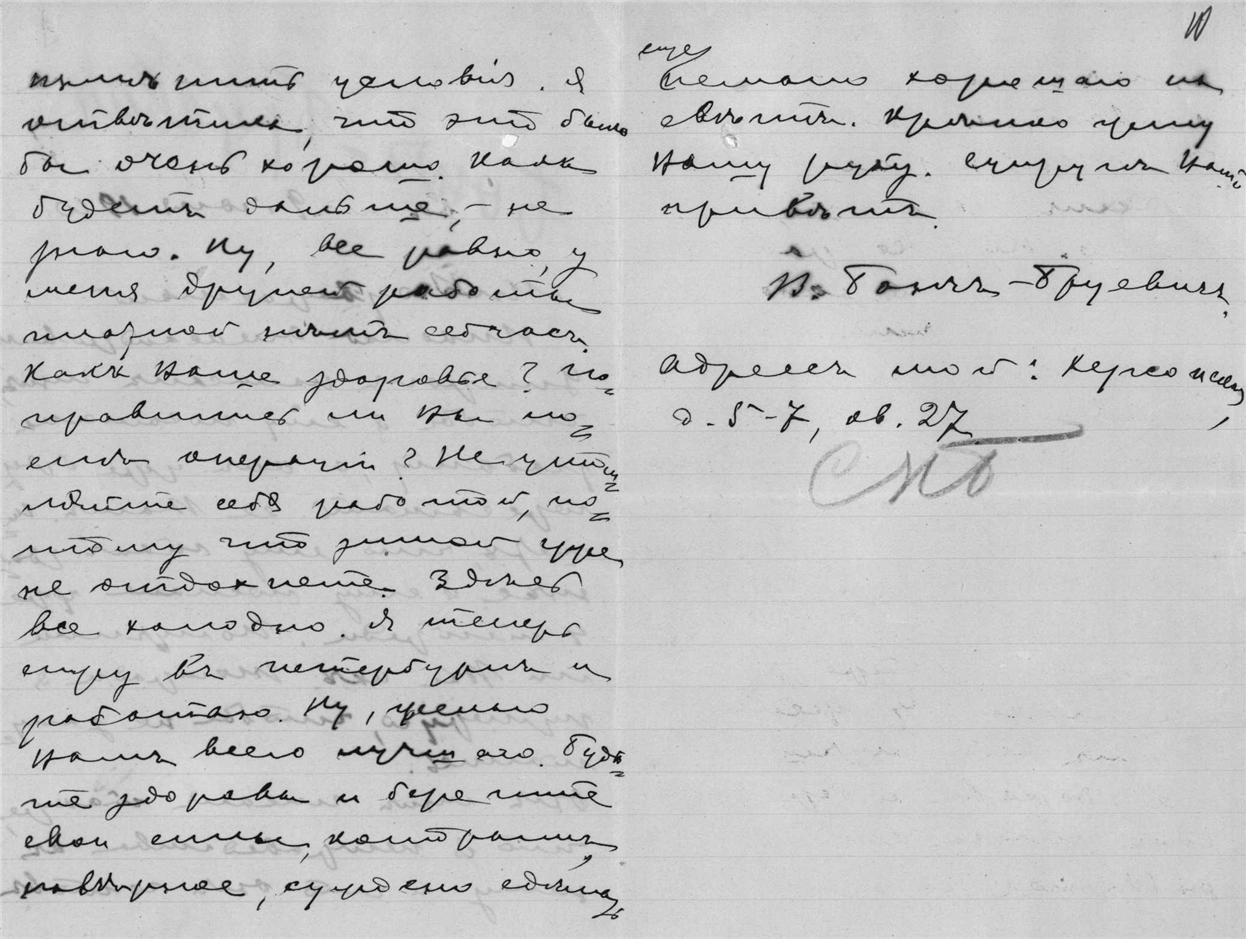 измѣнитъ условія. Я
отвѣтила, что это было
бы очень хорошо. Какъ
будетъ дальше, – не
знаю. Ну, все равно, у
меня другой работы
платной нѣтъ сейчасъ.
Какъ Ваше здоровье? По=
правились ли Вы по=
слѣ операціи? Не утом=
ляйте себя работой, по=
тому что зимой уже
не отдохнете. Здѣсь
все холодно. Я теперь
сижу въ Петербургѣ и
работаю. Ну, желаю
Вамъ всего лучшаго. Будь=
те здоровы и берегите
свои силы, которымъ,
навѣрное, суждено сдѣлать
10
еще
немало хорошаго на
свѣтѣ. Крѣпко жму
Вашу руку. Супругѣ Вашей
привѣтъ.
В. Бончъ-Бруевичъ.
Адресъ мой: Херсонская,
д. 5-7, кв. 27
СПБ